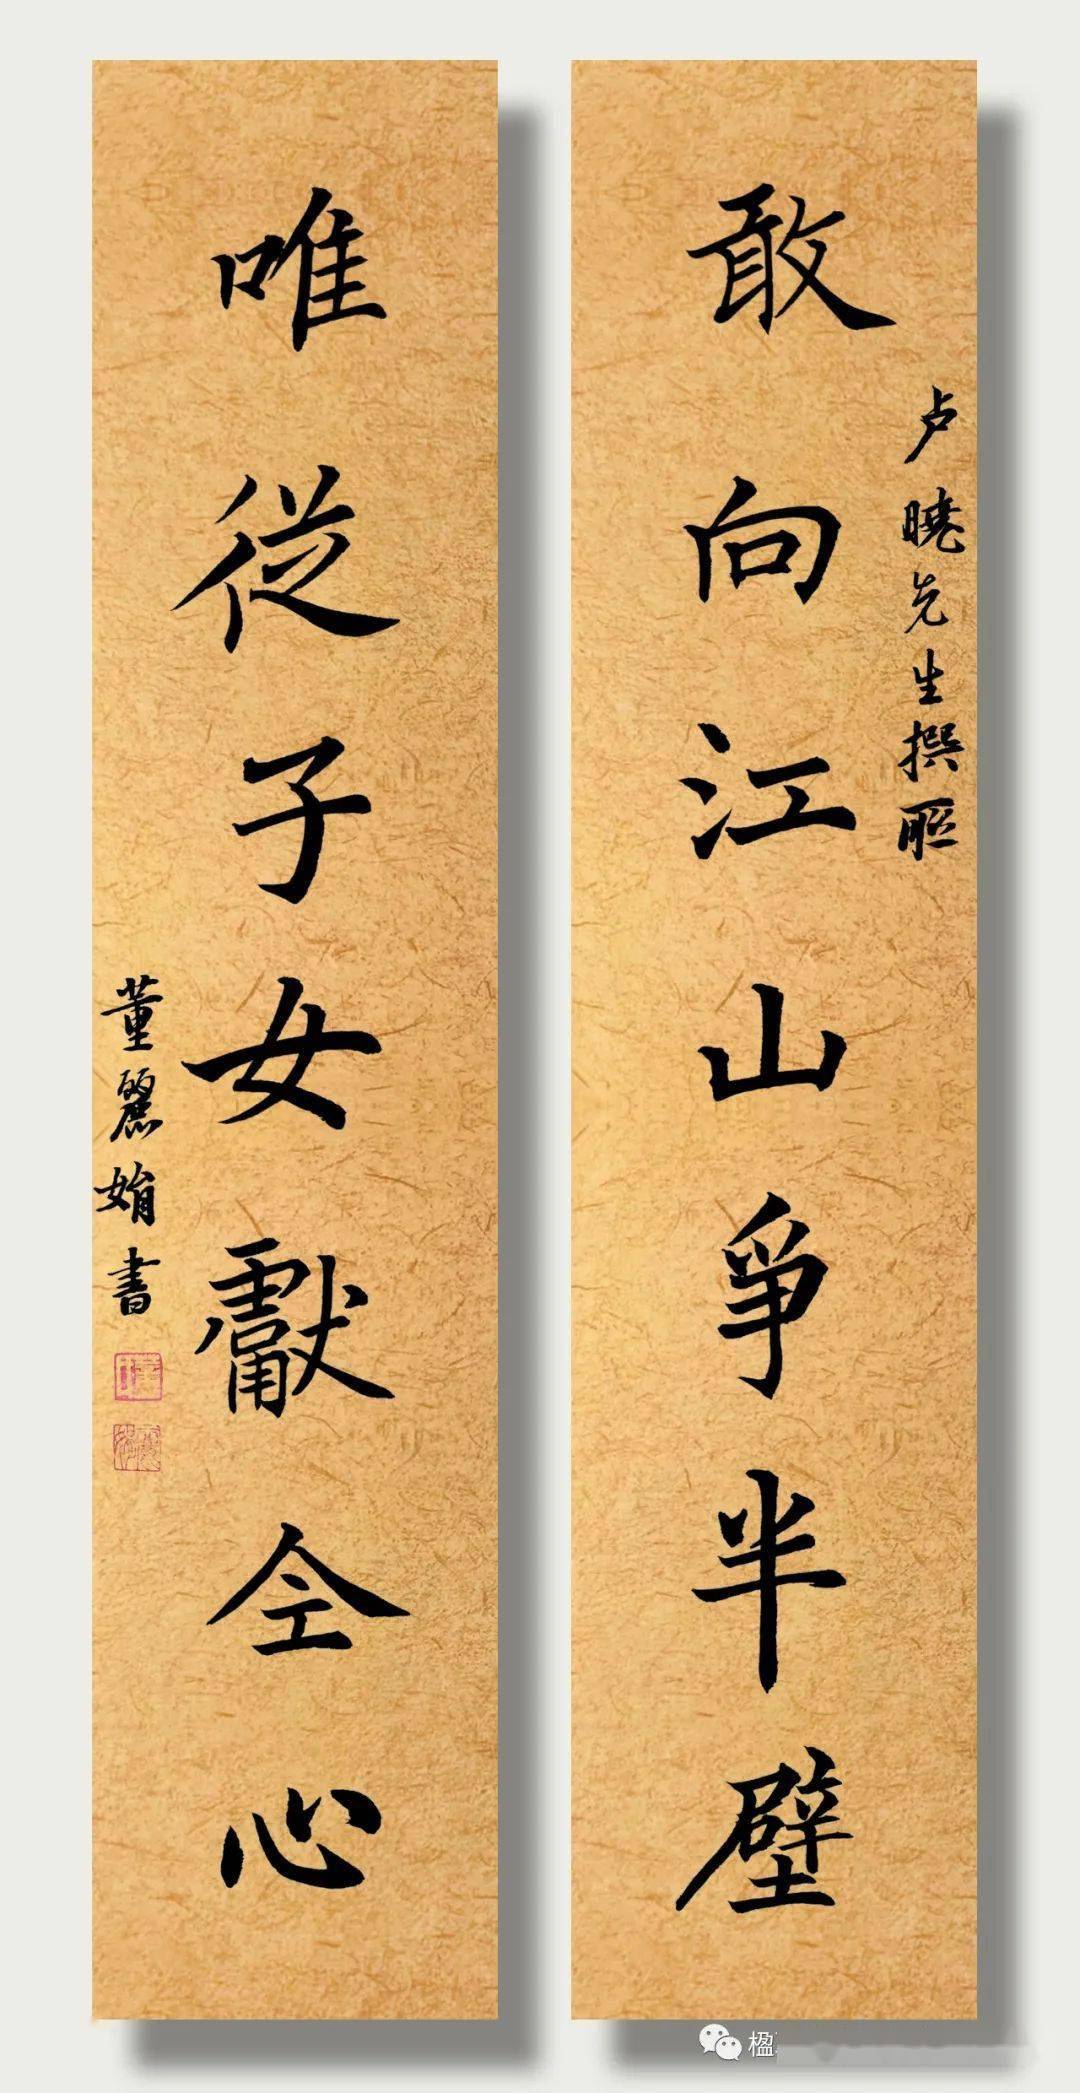 敢向江山爭半壁
卢曉先生撰联
唯從子女獻仝心
董麗娟書
楹